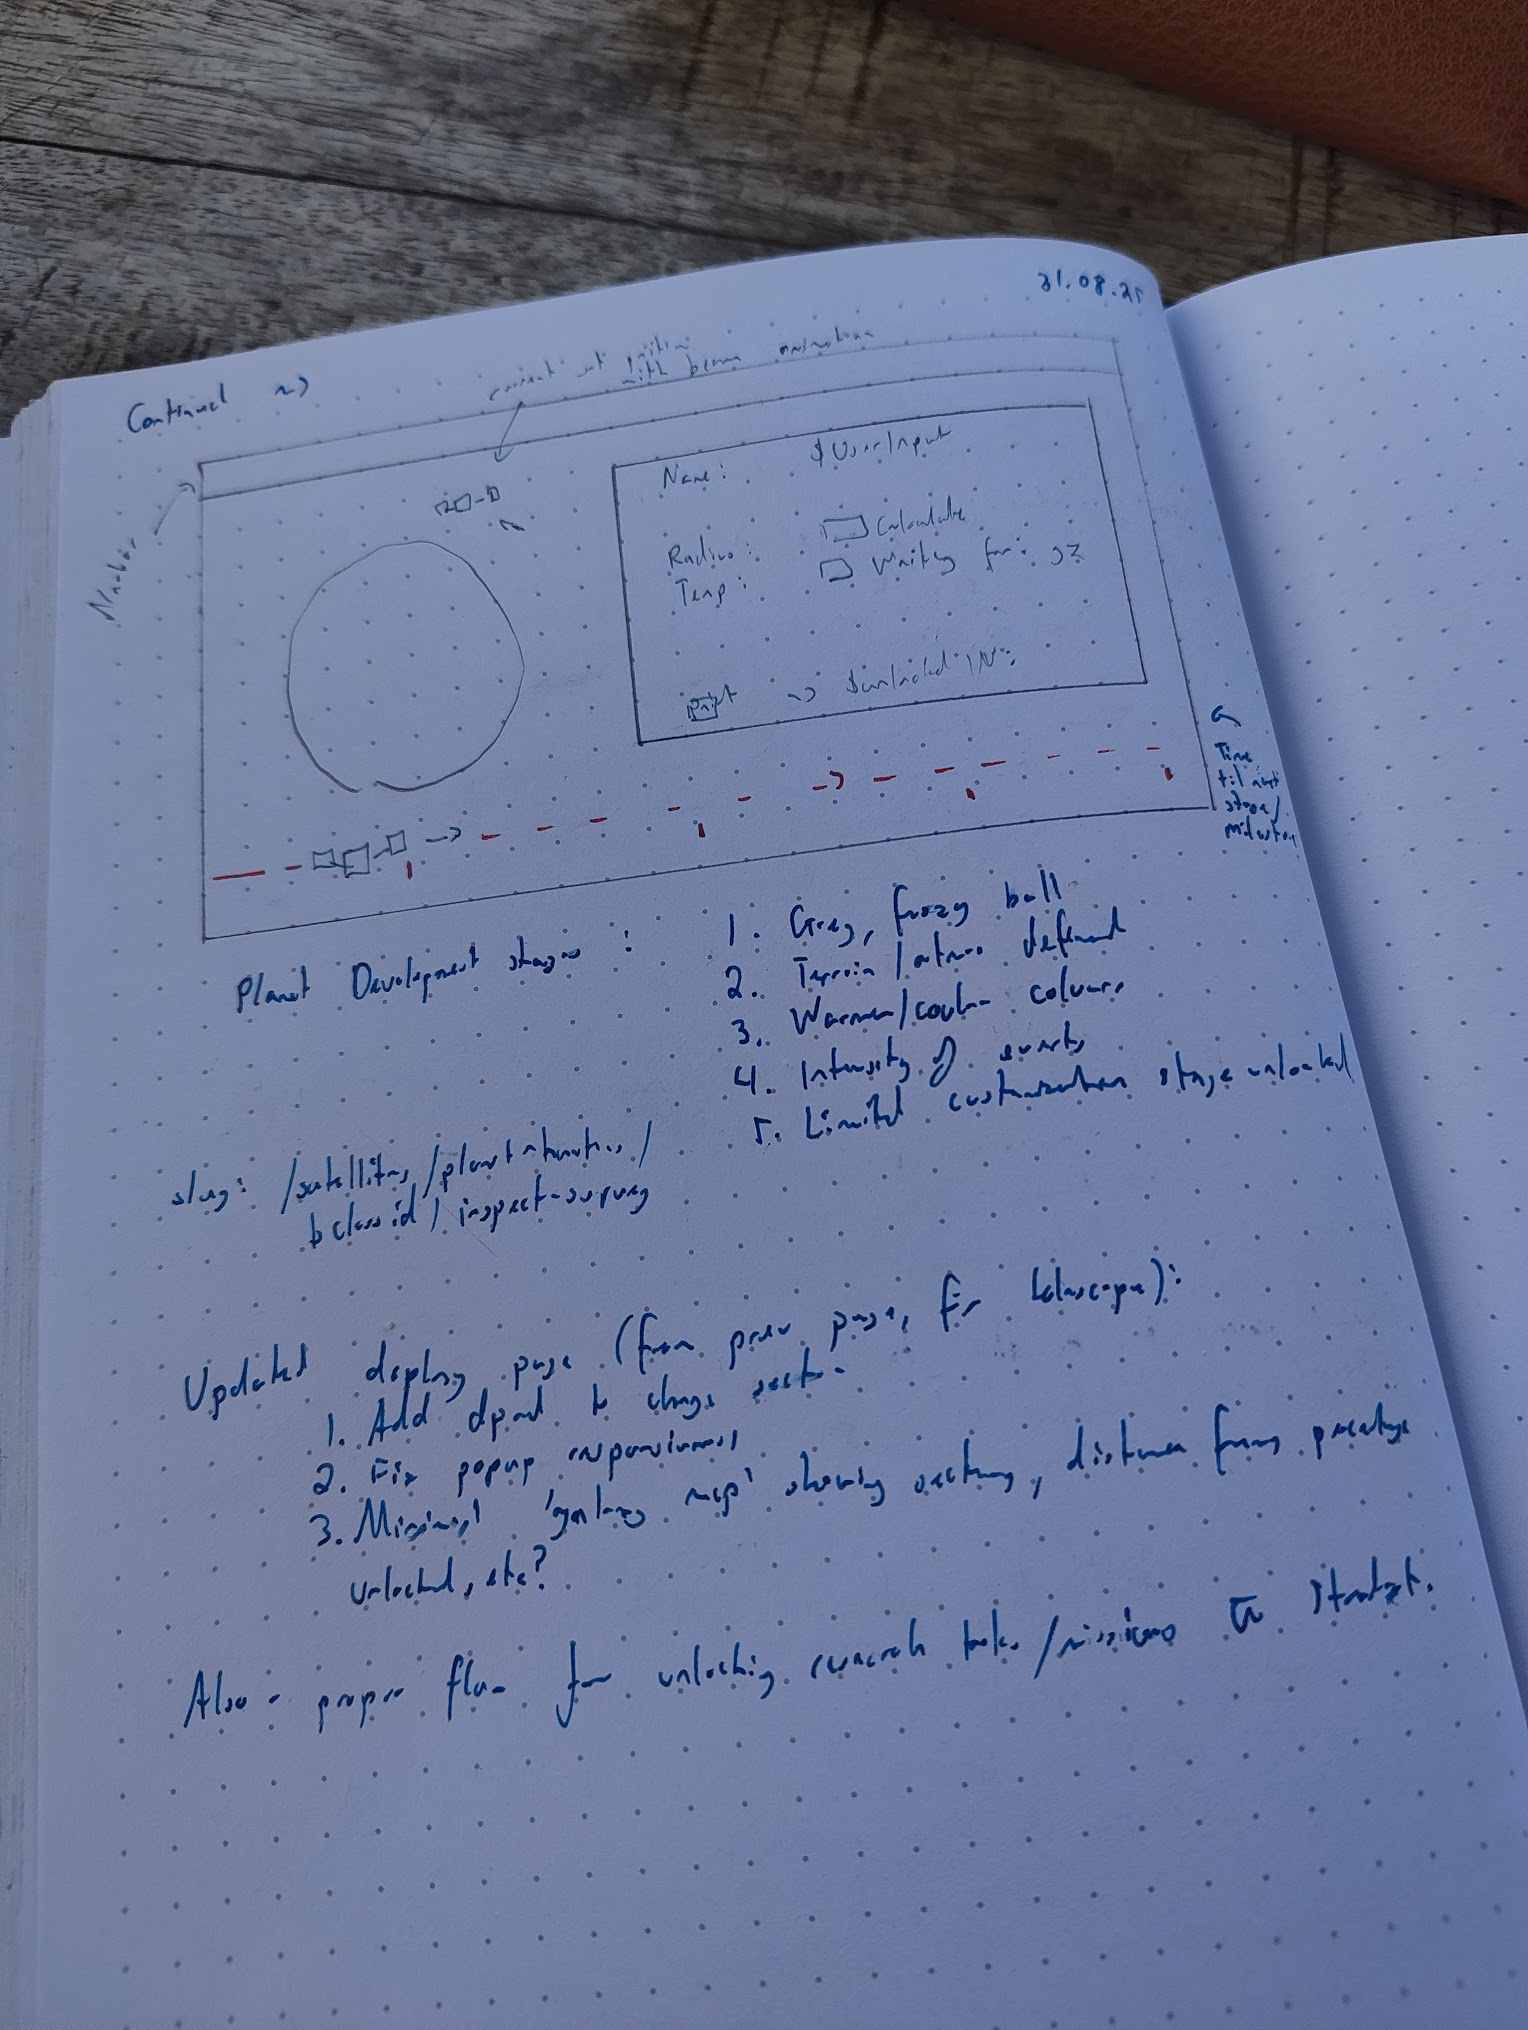 31.08.25
Continued ~>
current sat position
with beam animation
Navbar
Name: $UserInput
Radius: Calculate
Temp: Waiting for:
~> $unlocked IN:
Time
til next
stage/
Planet Development stages :
1. Grey, fuzzy ball
2. Terrain/atmos defined
3. Warmer/cooler colours
4. Intensity of events
5. Limited customisation stage unlocked
slug: /satellites/planet-hunters/
inspect-survey
Updated deploy page (from prev page, for telescope):
1. Add dpad to change sector
2. Fix popup responsiveness
3. Minimal 'galaxy map' showing sectors, distance from prev
unlocked, etc?
Also - proper flow for unlocking research tasks/missions